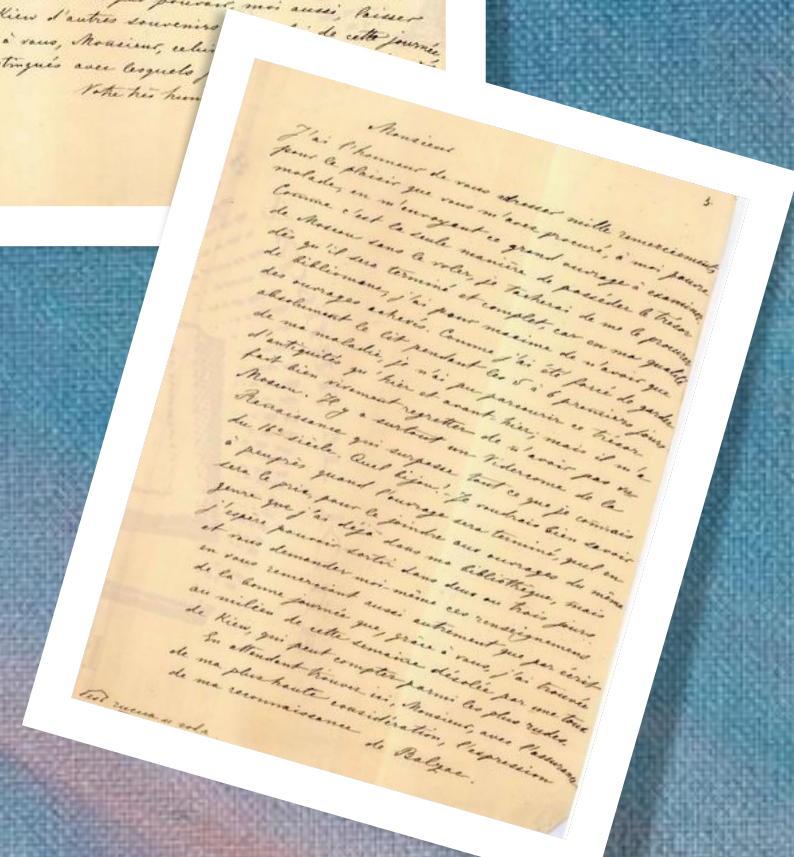 pouvoir moi aussi, laisser
Kiew d'autres souvenirs de cette journée
à vous, Monsieur, celui
tingués avec lesquels j
Votre très hum
3.
Monsieur
J'ai l'honneur de vous adresser mille remerciements
pour le plaisir que vous m'avez procuré, à moi, pauvre
malade, en m'envoyant ce grand ouvrage à examiner.
Comme c'est la seule manière de posséder le trésor
de Moscou sans le voler, je tacherai de me le procurer
dès qu'il sera terminé et complet, car en ma qualité
de bibliomane, j'ai pour maxime de n'avoir que
des ouvrages achevés. Comme j'ai été forcé de garder
absolument le lit pendant les 5 à 6 premiers jours
de ma maladie, je n'ai pu parcourir ce trésor
d'antiquités qu'hier et avant hier, mais il m'a
fait bien vivement regretter de n'avoir pas vu
Moscou. Il y a surtout un Vidercome de la
Renaissance qui surpasse tout ce que je connais
du 16e siècle. Quel bijou! Je voudrais bien savoir
à peuprès quand l'ouvrage sera terminé, quel en
sera le prix, pour le joindre aux ouvrages du même
genre que j'ai déjà dans ma bibliothèque, mais
j'espère pouvoir sortir dans deux ou trois jours
et vous demander moi-même ces renseignemens
en vous remerciant aussi autrement que par écrit
de la bonne journée que, grâce à vous, j'ai trouvée
au milieu de cette semaine désolée par une toux
de Kiew, qui peut compter parmi les plus rudes.
En attendant trouver ici, Monsieur, avec l'assurance
de ma plus haute considération, l'expression
de ma reconnaissance
de Balzac.